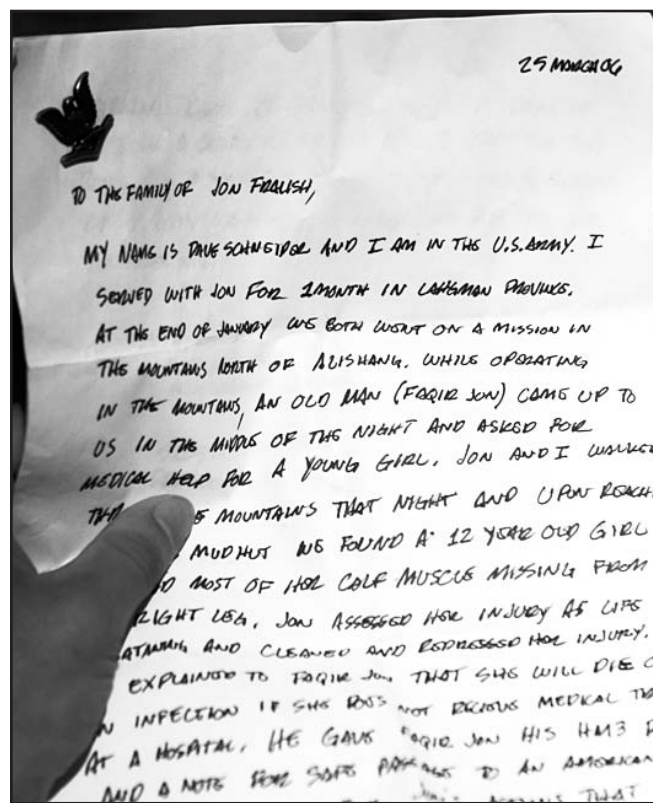 25 MARCH 06
TO THE FAMILY OF JON FRALISH,
MY NAME IS DAVE SCHNEIDER AND I AM IN THE U.S. ARMY. I
SERVED WITH JON FOR 1 MONTH IN LAHGMAN PROVINCE.
AT THE END OF JANUARY WE BOTH WENT ON A MISSION IN
THE MOUNTAINS NORTH OF ALISHANG. WHILE OPERATING
IN THE MOUNTAINS, AN OLD MAN (FAQIR JON) CAME UP TO
US IN THE MIDDLE OF THE NIGHT AND ASKED FOR
MEDICAL HELP FOR A YOUNG GIRL. JON AND I WALKED
MOUNTAINS THAT NIGHT AND UPON REACH
MUD HUT WE FOUND A 12 YEAR OLD GIRL
MOST OF HER CALF MUSCLE MISSING FROM
RIGHT LEG. JON ASSESSED HER INJURY AS LIFE
AND CLEANED AND REDRESSED HER INJURY.
EXPLAINED TO FAQIR JON THAT SHE WILL DIE
INFECTION IF SHE DOES NOT RECIEVE MEDICAL
AT A HOSPITAL. HE GAVE FAQIR JON HIS HM3
AND A NOTE FOR SAFE PASSAGE TO AN AMERICAN
THAT